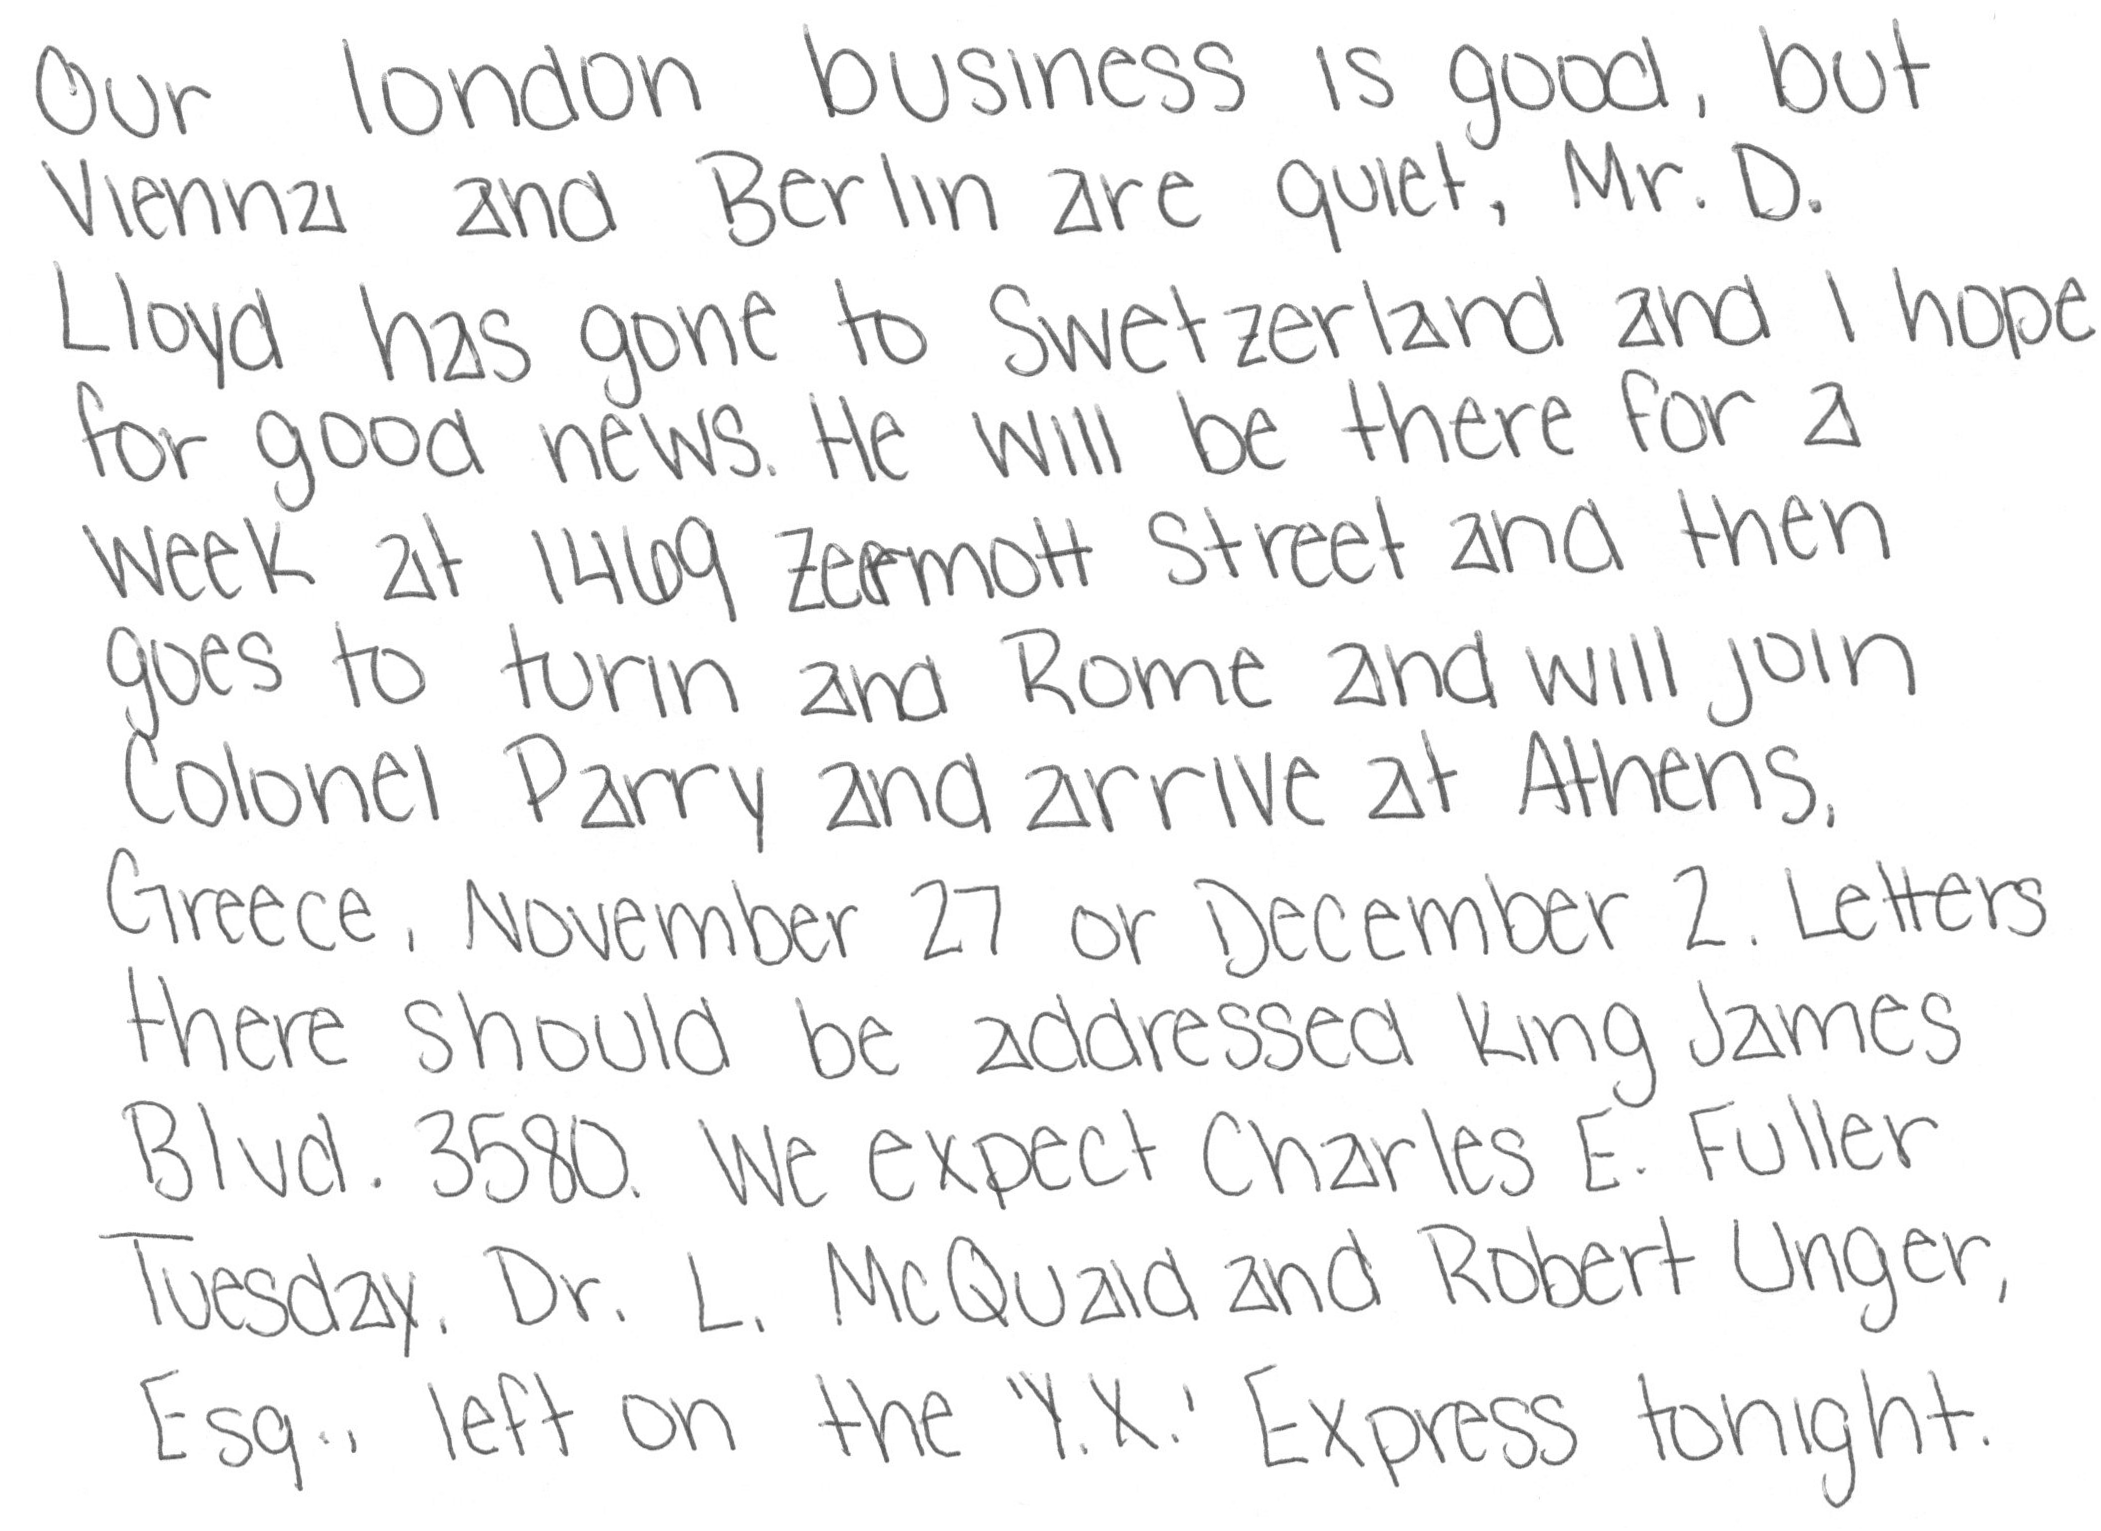 Our london business is good, but
Vienna and Berlin are quiet, Mr. D.
Lloyd has gone to Swetzerland and I hope
for good news. He will be there for a
week at 1469 Zeermott Street and then
goes to turin and Rome and will join
Colonel Parry and arrive at Athens,
Greece, November 27 or December 2. Letters
there should be addressed King James
Blvd. 3580. We expect Charles E. Fuller
Tuesday. Dr. L. McQuaid and Robert Unger,
Esq., left on the "Y.X.' Express tonight.